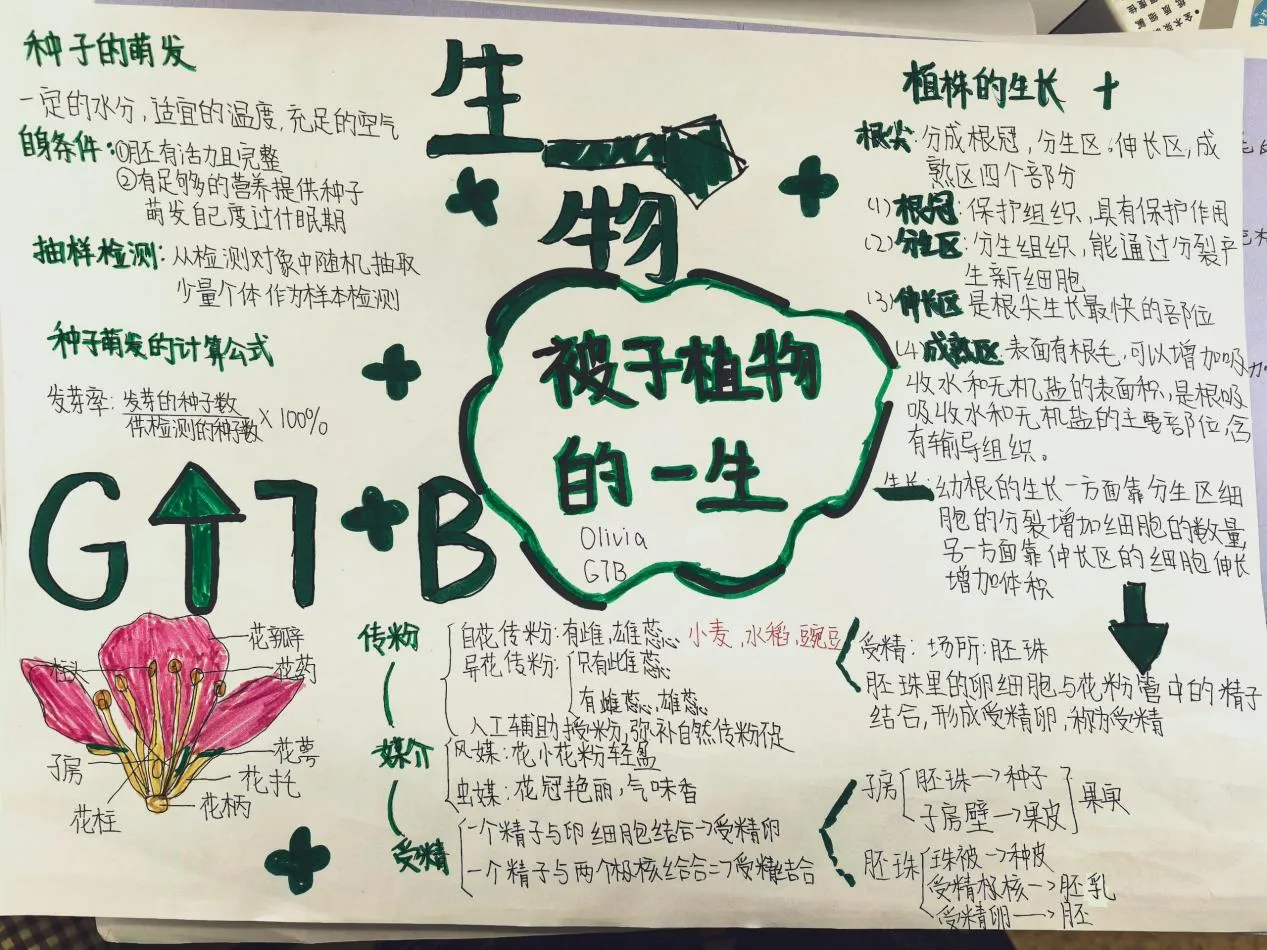 种子的萌发
一定的水分,适宜的温度,充足的空气
自身条件:①胚有活力且完整
②有足够的营养提供种子
萌发自己度过休眠期
抽样检测:从检测对象中随机抽取
少量个体作为样本检测
种子萌发的计算公式
发芽率:发芽的种子数
供检测的种子数
×100%
G↑7+B
生
物
被子植物
的一生
Olivia
G7B
植株的生长
根尖:分成根冠,分生区,伸长区,成
熟区四个部分
(1)根冠:保护组织,具有保护作用
(2)分生区:分生组织,能通过分裂产
生新细胞
(3)伸长区 是根尖生长最快的部位
(4)成熟区:表面有根毛,可以增加吸
收水和无机盐的表面积,是根吸
吸收水和无机盐的主要部位,含
有输导组织。
生长:幼根的生长一方面靠分生区细
胞的分裂增加细胞的数量,
另一方面靠伸长区的细胞伸长
增加体积
花瓣
柱头
花药
花萼
子房
花托
花柱
花柄
传粉
自花传粉:有雌,雄蕊 小麦,水稻,豌豆
异花传粉:
只有雌蕊
有雌蕊,雄蕊
人工辅助授粉,弥补自然传粉不足
媒介
风媒:花小花粉轻盈
虫媒:花冠艳丽,气味香
受精
一个精子与卵细胞结合→受精卵
一个精子与两个极核结合=>受精结合
受精:场所:胚珠
胚珠里的卵细胞与花粉管中的精子
结合,形成受精卵,称为受精
子房
胚珠→种子
子房壁→果皮
果实
胚珠
珠被→种皮
受精极核→胚乳
受精卵→胚